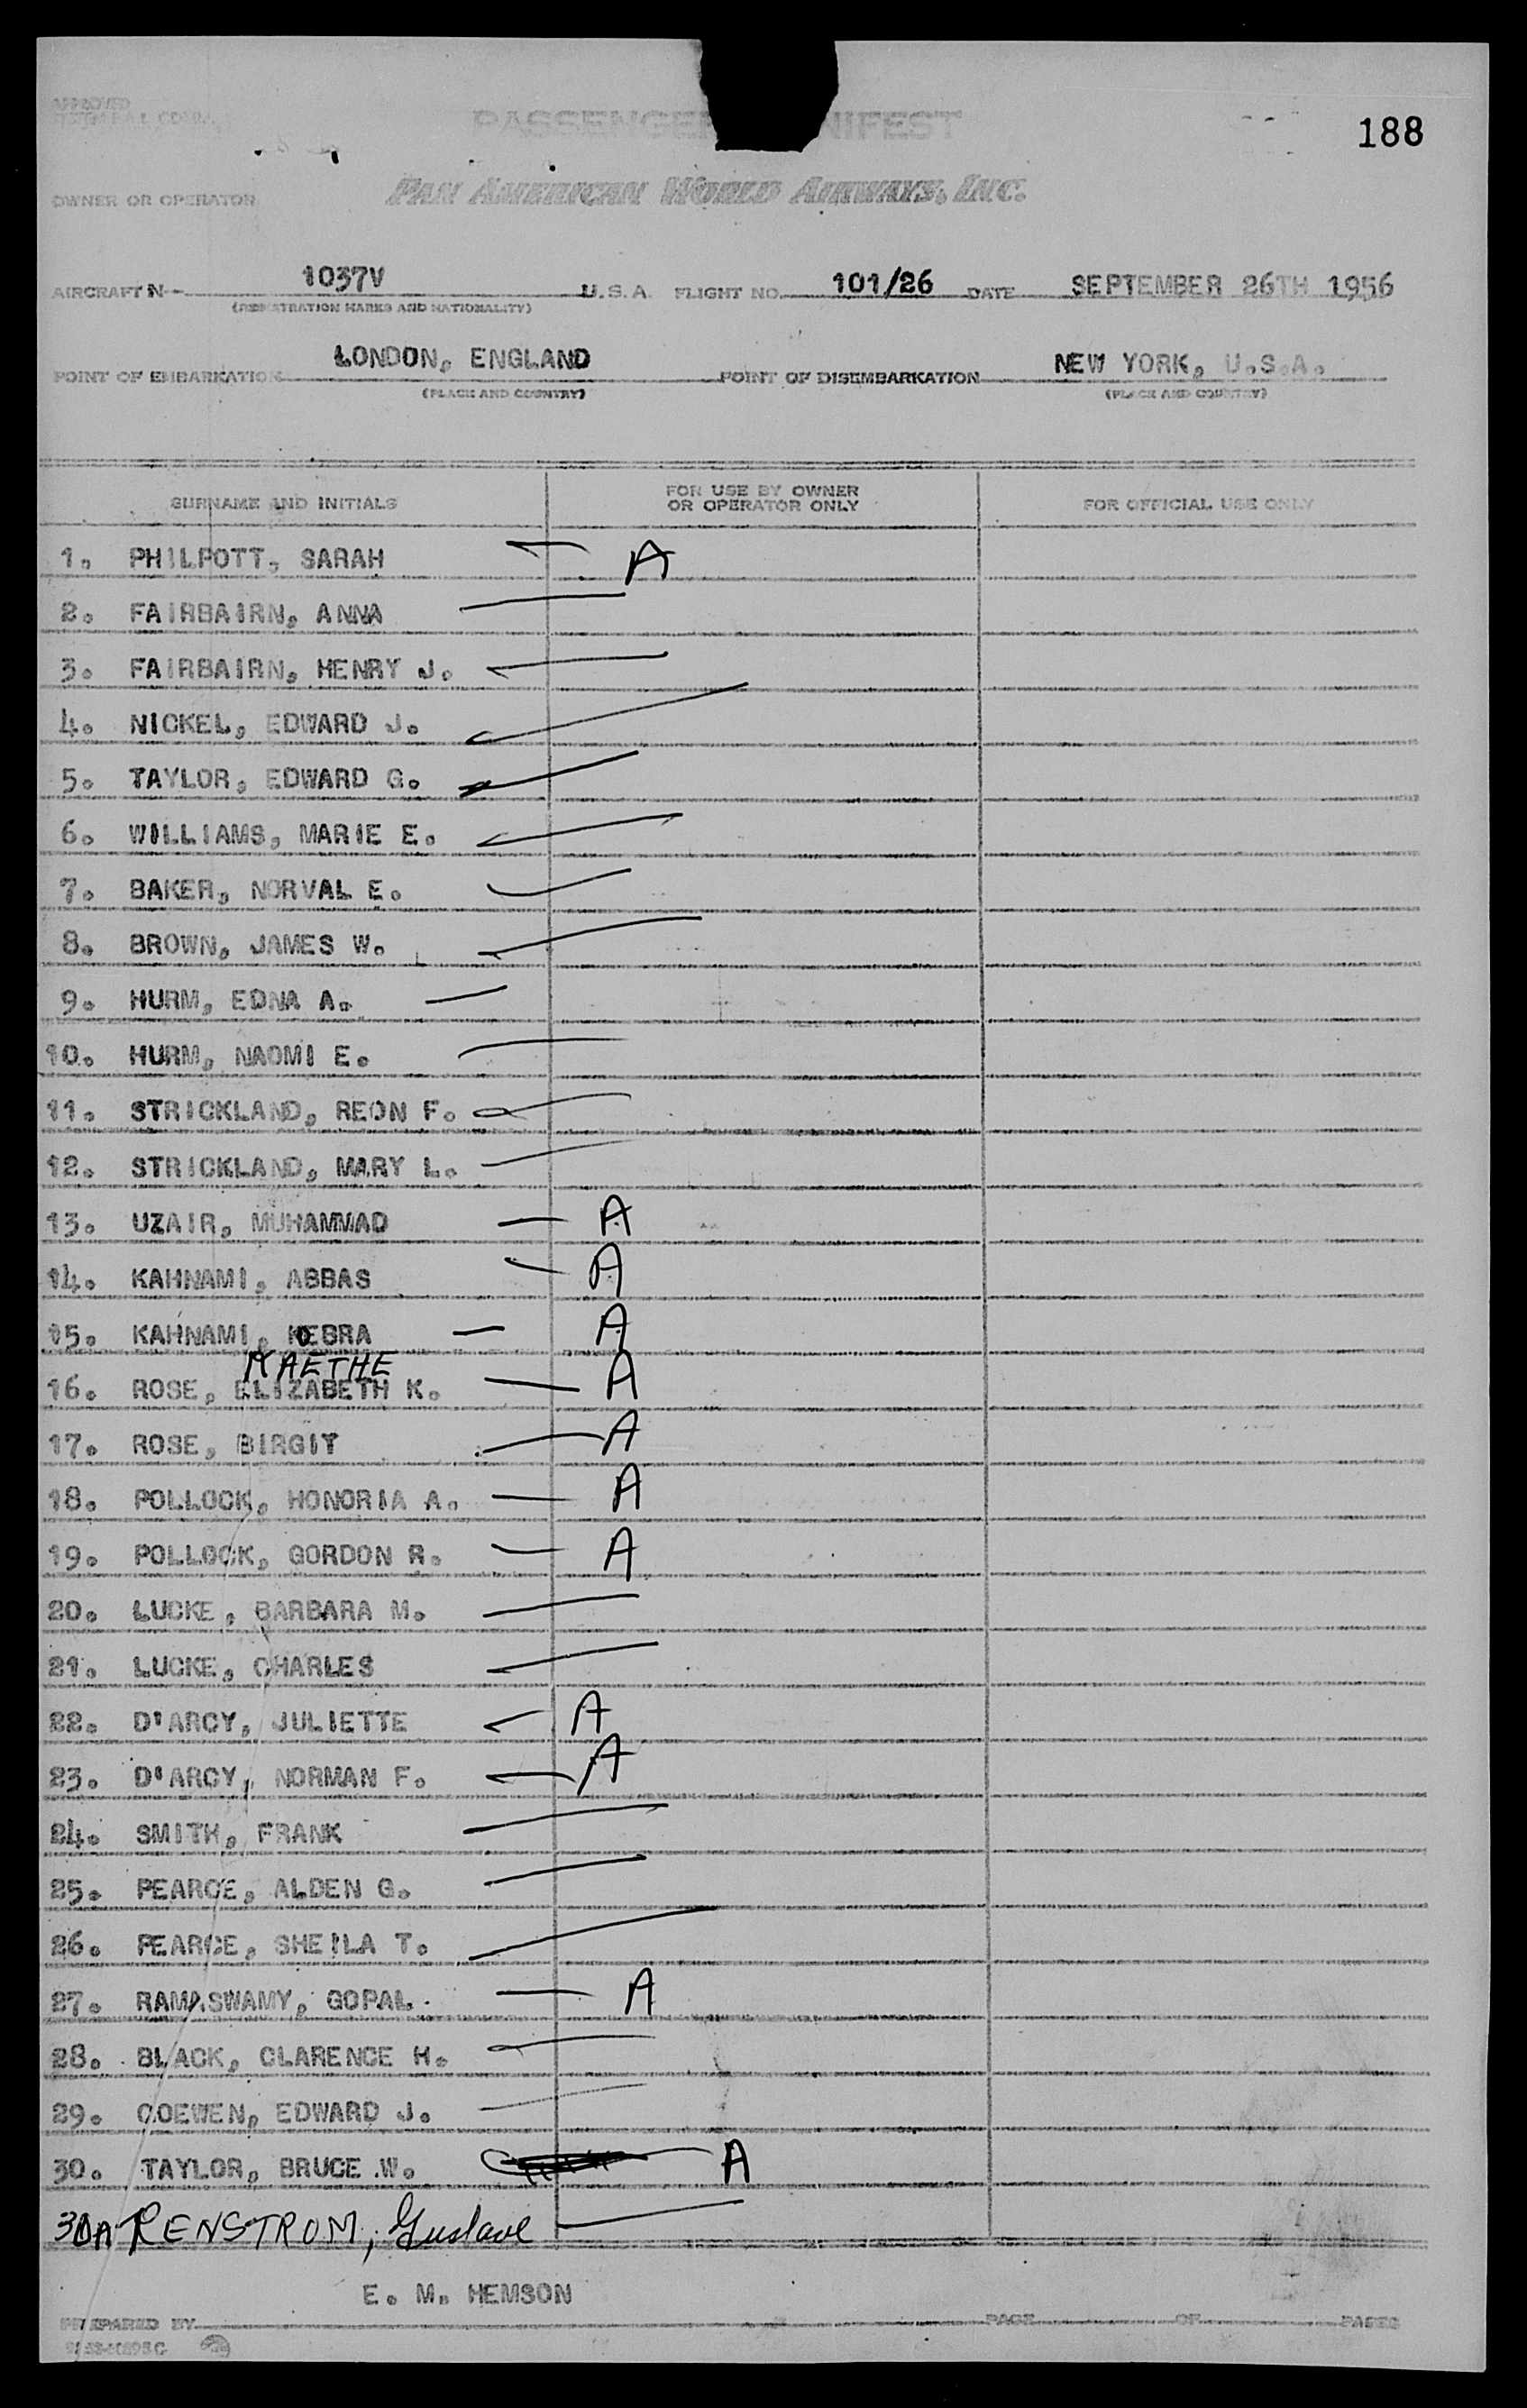 APPROVED
PASSENGER MANIFEST
188
OWNER OR OPERATOR PAN AMERICAN WORLD AIRWAYS, INC.
AIRCRAFT N- 1037V U.S.A. FLIGHT NO. 101/26 DATE SEPTEMBER 26TH 1956
(REGISTRATION MARKS AND NATIONALITY)
POINT OF EMBARKATION LONDON, ENGLAND POINT OF DISEMBARKATION NEW YORK, U.S.A.
(PLACE AND COUNTRY) (PLACE AND COUNTRY)
SURNAME AND INITIALS FOR USE BY OWNER OR OPERATOR ONLY FOR OFFICIAL USE ONLY
1. PHILPOTT, SARAH A
2. FAIRBAIRN, ANNA
3. FAIRBAIRN, HENRY J.
4. NICKEL, EDWARD J.
5. TAYLOR, EDWARD G.
6. WILLIAMS, MARIE E.
7. BAKER, NORVAL E.
8. BROWN, JAMES W.
9. HURM, EDNA A.
10. HURM, NAOMI E.
11. STRICKLAND, REON F.
12. STRICKLAND, MARY L.
13. UZAIR, MUHAMMAD A
14. KAHNAMI, ABBAS A
15. KAHNAMI, KEBRA A
KAETHE
16. ROSE, ELIZABETH K. A
17. ROSE, BIRGIT A
18. POLLOCK, HONORIA A. A
19. POLLOCK, GORDON R. A
20. LUCKE, BARBARA M.
21. LUCKE, CHARLES
22. D'ARCY, JULIETTE A
23. D'ARCY, NORMAN F. A
24. SMITH, FRANK
25. PEARCE, ALDEN G.
26. PEARCE, SHEILA T.
27. RAMASWAMY, GOPAL A
28. BLACK, CLARENCE H.
29. COEWEN, EDWARD J.
30. TAYLOR, BRUCE W. A
30A RENSTROM, Gustave
E. M. HEMSON
PREPARED BY PAGE OF PAGES